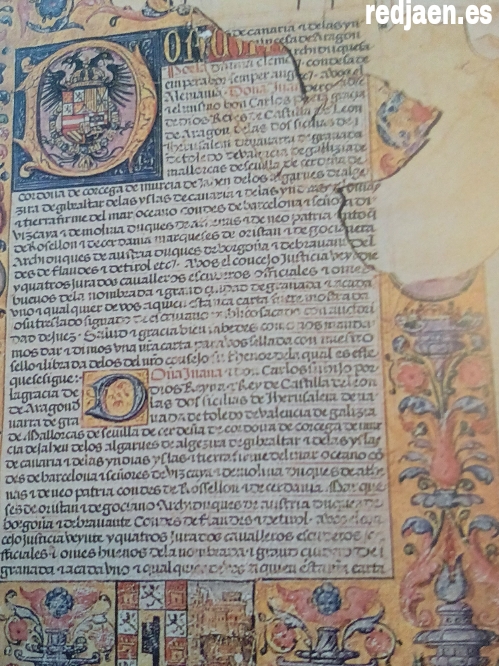 redjaen.es
DON CARLOS
de canaria ⁊ delas yn
princesa de aragon
archiduquesa
Por la divina clemen condesa de
emperador semper augus⁊. a vos el
Alemania. Dona Juana
⁊ el mismo don Carlos por la gracia
de dios Reyes de Castilla de Leon
de Aragon delas dos sicilias de
Iherusalem de navarra de granada
de toledo de valencia de gallizia de
mallorcas de sevilla de cerdeña de
cordova de corcega de murcia de Jahen delos algarves de alge
zira de gibraltar delas yslas de canaria ⁊ delas yndias yslas
⁊ tierra firme del mar oceano condes de barcelona ⁊ señores de
vizcaya ⁊ de molina duques de athenas ⁊ de neo patria condes
de Rosellon ⁊ de cerdania marqueses de oristan ⁊ de gociano
Archiduques de austria duques de borgoña ⁊ de bravante con
des de flandes ⁊ de tirol etc. A vos el concejo Justicia veynte
y quatros jurados cavalleros escuderos officiales ⁊ omes
buenos dela nombrada ⁊ grand ciudad de granada ⁊ a cada
uno ⁊ qualquier de vos a quien esta nra carta fuere mostrada
o su treslado signado de escrivano publico sacado con auctori
dad de juez. Salud ⁊ gracia bien sabedes como nos manda
mos dar ⁊ dimos una nra carta para vos sellada con nuestro
sello ⁊ librada delos del nro consejo su thenor dela qual es este
que se sigue:
Doña Juana ⁊ don Carlos su hijo por
la gracia de dios Reyna ⁊ Rey de Castilla de Leon
de Aragon delas dos sicilias de Iherusalem de na
varra de granada de toledo de valencia de galizia
de Mallorcas de sevilla de cerdeña de cordova de corcega de mur
cia de Jahen delos algarves de algezira de gibraltar ⁊ delas yslas
de canaria ⁊ delas yndias yslas ⁊ tierra firme del mar oceano con
des de barcelona ⁊ señores de vizcaya ⁊ de molina duques de athe
nas ⁊ de neo patria condes de Rossellon ⁊ de cerdania. Marque
ses de oristan ⁊ de gociano Archiduques de austria duques de
borgoña ⁊ de bravante Condes de flandes ⁊ de tirol. A vos el con
cejo justicia veynte y quatros Jurados cavalleros escuderos o
fficiales ⁊ omes buenos dela nombrada ⁊ grand ciudad de
granada ⁊ a cada uno ⁊ qualquier de vos a quien esta nra carta